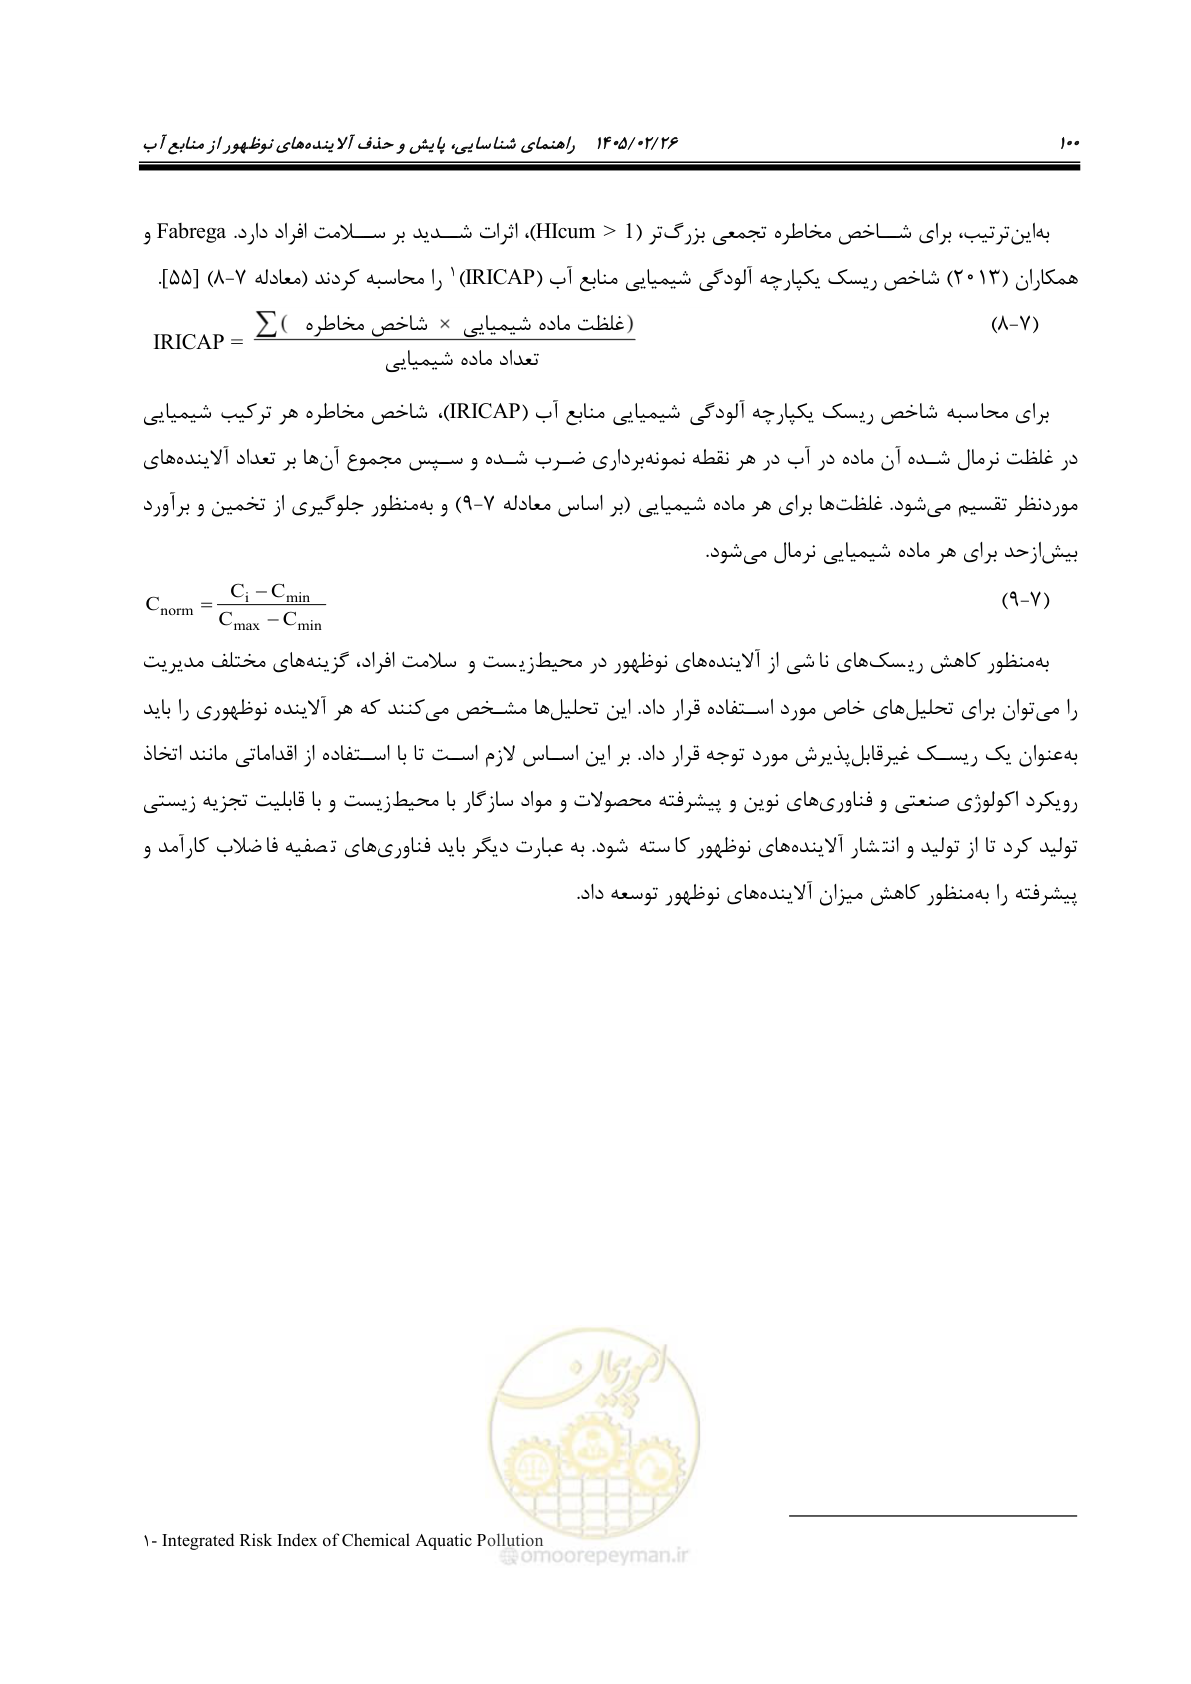 ۱۰۰ ۱۴۰۵/۰۲/۲۶ راهنمای شناسایی، پایش و حذف آلاینده‌های نوظهور از منابع آب
به‌این‌ترتیب، برای شاخص مخاطره تجمعی بزرگ‌تر (HIcum > 1)، اثرات شدید بر سلامت افراد دارد. Fabrega و
همکاران (۲۰۱۳) شاخص ریسک یکپارچه آلودگی شیمیایی منابع آب (IRICAP)۱ را محاسبه کردند (معادله ۷-۸) [۵۵].
(۷-۸) IRICAP = ∑( شاخص مخاطره × غلظت ماده شیمیایی)
تعداد ماده شیمیایی
برای محاسبه شاخص ریسک یکپارچه آلودگی شیمیایی منابع آب (IRICAP)، شاخص مخاطره هر ترکیب شیمیایی
در غلظت نرمال شده آن ماده در آب در هر نقطه نمونه‌برداری ضرب شده و سپس مجموع آن‌ها بر تعداد آلاینده‌های
موردنظر تقسیم می‌شود. غلظت‌ها برای هر ماده شیمیایی (بر اساس معادله ۷-۹) و به‌منظور جلوگیری از تخمین و برآورد
بیش‌ازحد برای هر ماده شیمیایی نرمال می‌شود.
(۷-۹) Cnorm = Ci – Cmin
Cmax – Cmin
به‌منظور کاهش ریسک‌های ناشی از آلاینده‌های نوظهور در محیط‌زیست و سلامت افراد، گزینه‌های مختلف مدیریت
را می‌توان برای تحلیل‌های خاص مورد استفاده قرار داد. این تحلیل‌ها مشخص می‌کنند که هر آلاینده نوظهوری را باید
به‌عنوان یک ریسک غیرقابل‌پذیرش مورد توجه قرار داد. بر این اساس لازم است تا با استفاده از اقداماتی مانند اتخاذ
رویکرد اکولوژی صنعتی و فناوری‌های نوین و پیشرفته محصولات و مواد سازگار با محیط‌زیست و با قابلیت تجزیه زیستی
تولید کرد تا از تولید و انتشار آلاینده‌های نوظهور کاسته شود. به عبارت دیگر باید فناوری‌های تصفیه فاضلاب کارآمد و
پیشرفته را به‌منظور کاهش میزان آلاینده‌های نوظهور توسعه داد.
امور پیمان
۱- Integrated Risk Index of Chemical Aquatic Pollution
@omoorepeyman.ir